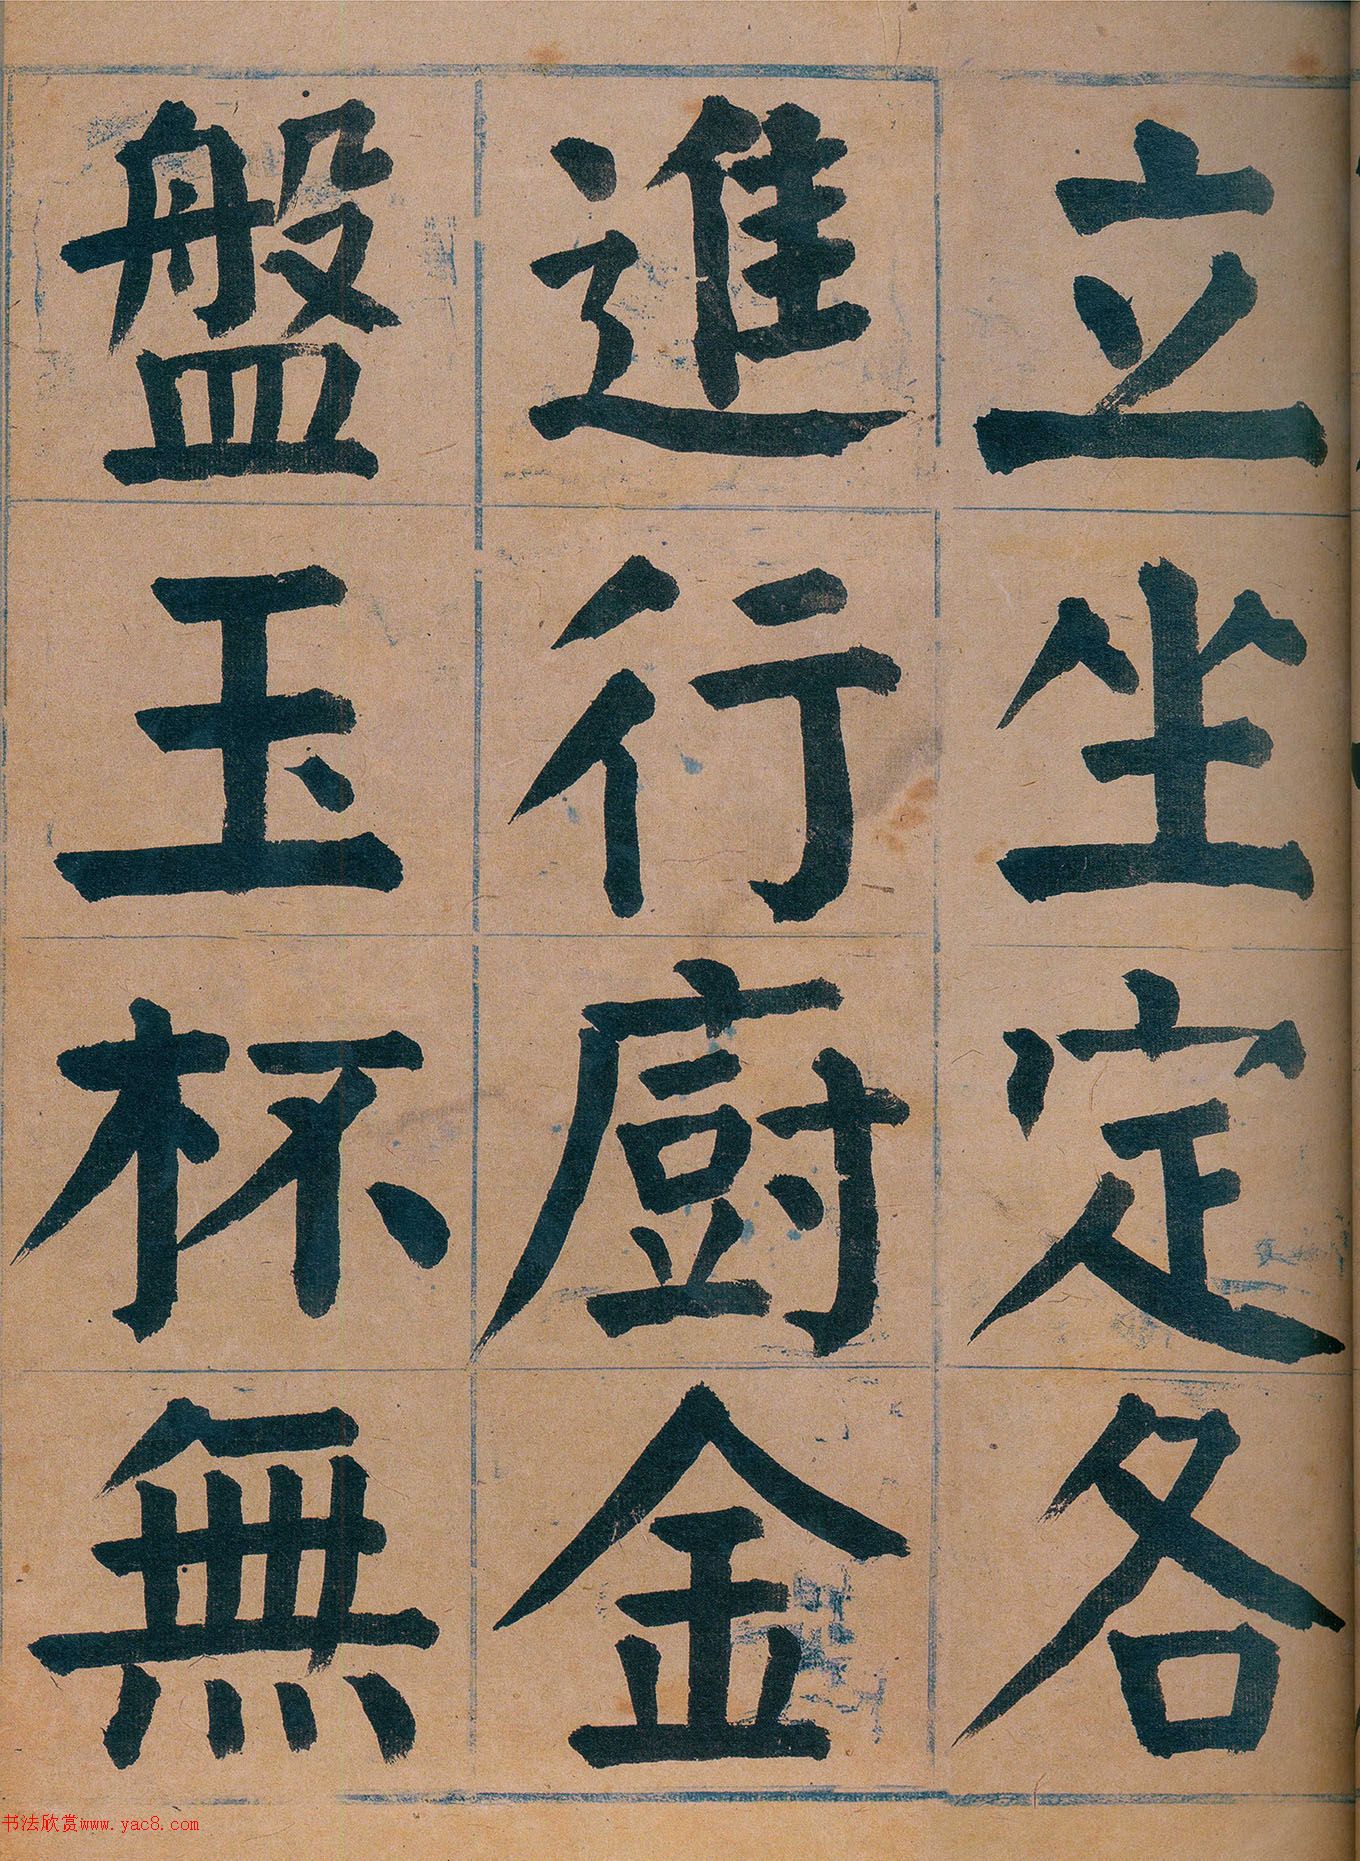 立坐定各
進行廚金
盤玉杯無
书法欣赏www.yac8.com